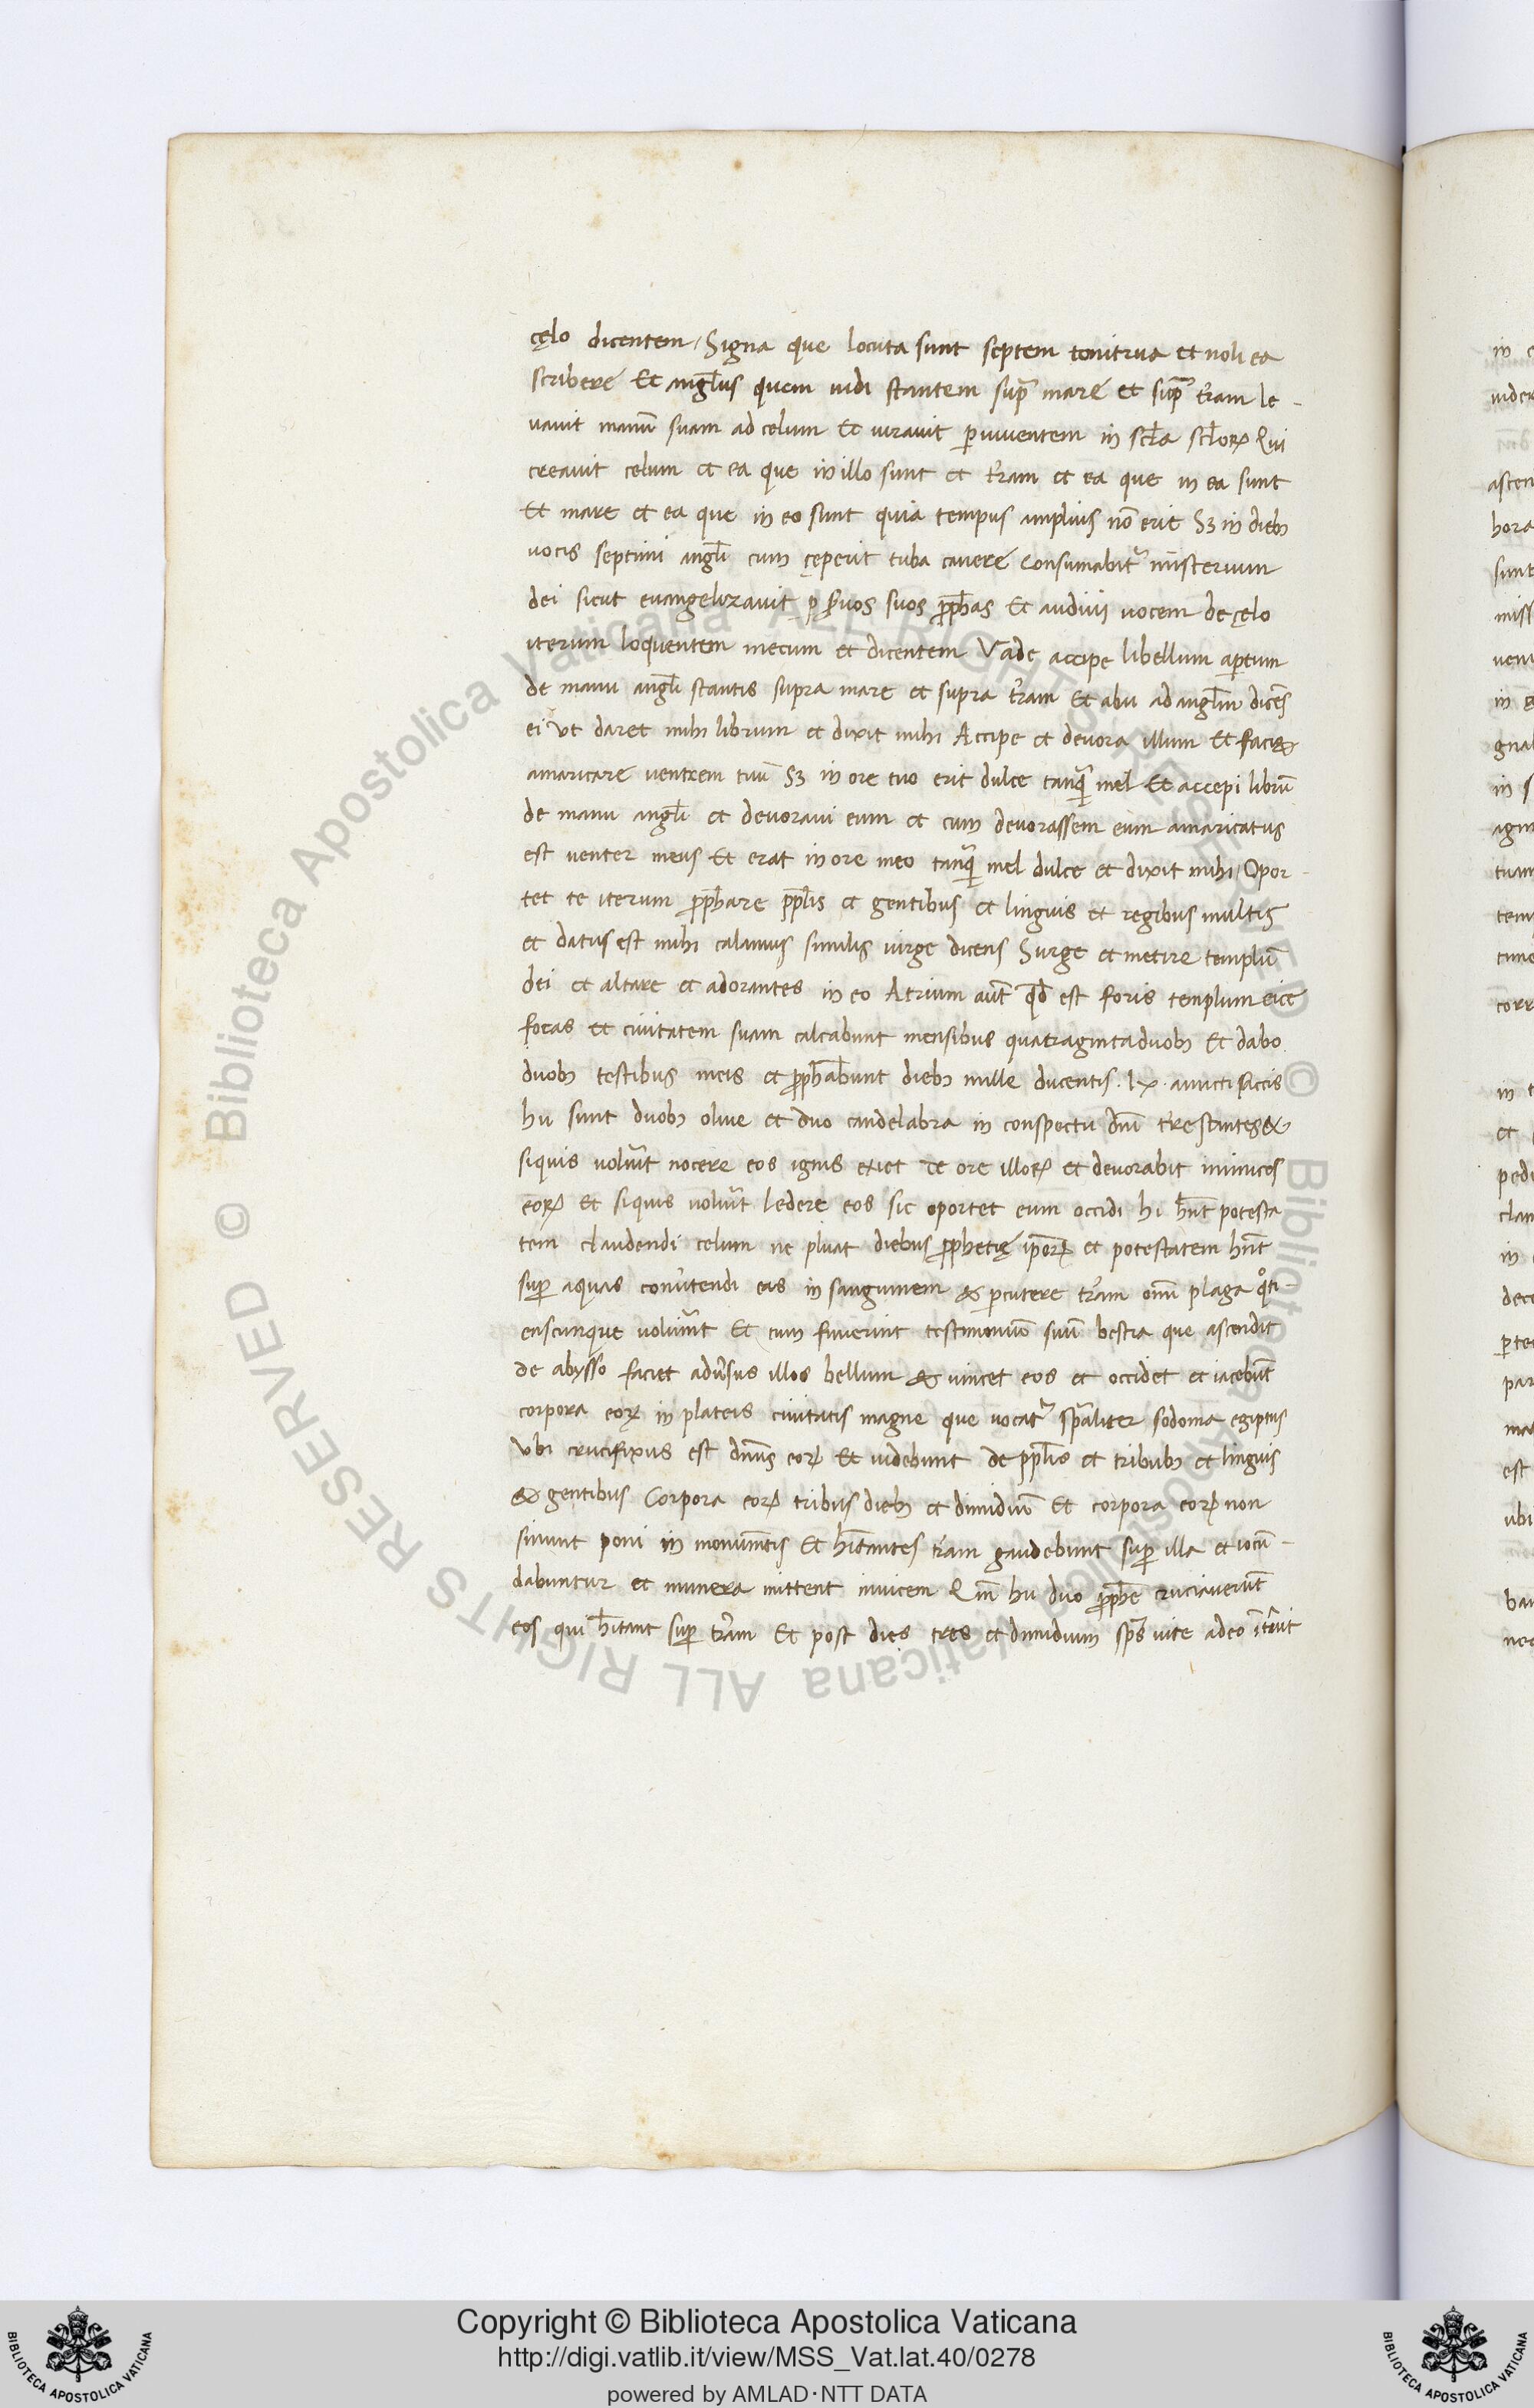 cęlo dicentem / Signa que locuta sunt septem tonitrua et noli ea
scribere Et angl̄us quem uidi stantem sup̄ mare et sup̄ tr̄am le-
vauit manū suam ad celum Et iurauit ꝑ uiuentem in scl̄a scl̄oꝝ Qui
creauit celum et ea que in illo sunt et tr̄am et ea que in ea sunt
Et mare et ea que in eo sunt quia tempus amplius nō erit Sꝫ in dieb
uocis septimi angl̄i cum cęperit tuba canere consumabit᷑ misterium
dei sicut euangelizauit ꝑ s̄uos suos ꝓph̄as Et audiui uocem de cęlo
iterum loquentem mecum et dicentem Vade accipe libellum aꝑtum
de manu angl̄i stantis supra mare et supra tr̄am Et abii ad angl̄m dicēs
ei vt daret mihi librum et dixit mihi Accipe et deuora illum Et faciet
amaricare uentrem tuū Sꝫ in ore tuo erit dulce tanq̄ mel Et accepi librū
de manu angl̄i et deuoraui eum et cum deuorassem eum amaricatus
est uenter meus Et erat in ore meo tanq̄ mel dulce et dixit mihi / Opor-
tet te iterum ꝓph̄are ppl̄is et gentibus et linguis et regibus multis
et datus est mihi calamus similis uirge dicens Surge et metire templū
dei et altare et adorantes in eo Atrium aūt qd̄ est foris templum eice
foras et ciuitatem suam calcabunt mensibus quatraginta duob Et dabo
duob testibus meis et ꝓph̄abunt dieb mille ducentis . lx . amicti saccis
hii sunt duob oliue et duo candelabra in conspectu dn̄i tr̄e stantes Et
siquis uolūit nocere eos ignis exiet de ore illoꝝ et deuorabit inimicos
eoꝝ Et siquis uolūit ledere eos sic oportet eum occidi hi hn̄t potesta
tem claudendi celum ne pluat diebus ꝓphetię ip̄oꝝ et potestatem hn̄t
suꝑ aquas conūtendi eas in sanguinem & ꝑcutere tr̄am om̄i plaga qͦti-
enscunque uolūint Et cum finierint testimoniū suū bestia que ascendit
de abysso faciet adūsus illos bellum & uincet eos et occidet et iacebūt
corpora eoꝝ in plateis ciuitatis magne que uocat᷑ sp̄aliter sodoma egiptus
Vbi crucifixus est dn̄us eoꝝ Et uidebunt de ppl̄is et tribub et linguis
& gentibus Corpora eoꝝ tribus dieb et dimidiū Et corpora eoꝝ non
sinunt poni in monum̄tis Et hītantes tr̄am gaudebunt suꝑ illa et iocū-
dabuntur et munera mittent inuicem Qm̄ hii duo ꝓph̄e cruciauerūt
eos qui hītant suꝑ tr̄am Et post dies tres et dimidium sp̄s uite a deo ītrāuit
Copyright © Biblioteca Apostolica Vaticana
http://digi.vatlib.it/view/MSS_Vat.lat.40/0278
powered by AMLAD·NTT DATA